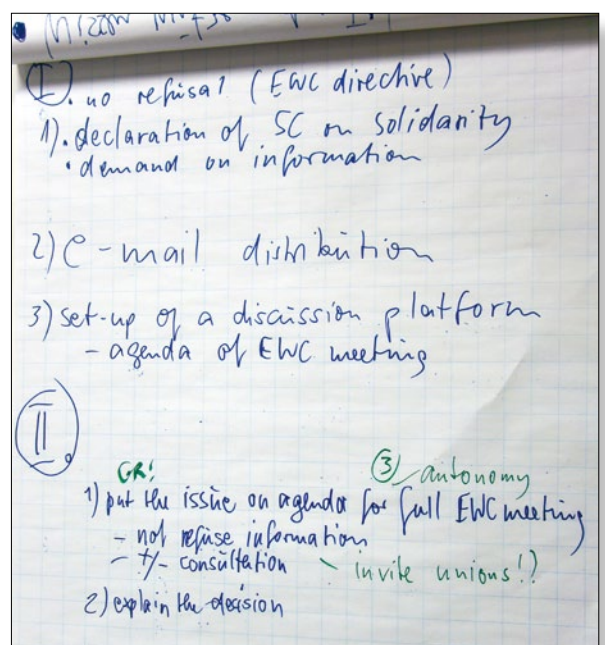 I. no refusal (EWC directive)
1). declaration of SC on solidarity
• demand on information
2) e-mail distribution
3) set-up of a discussion platform
- agenda of EWC meeting
II.
GR! ③ autonomy
1) put the issue on agenda for full EWC meeting
- not refuse information
- +/- consultation - invite unions!?
2) explain the decision